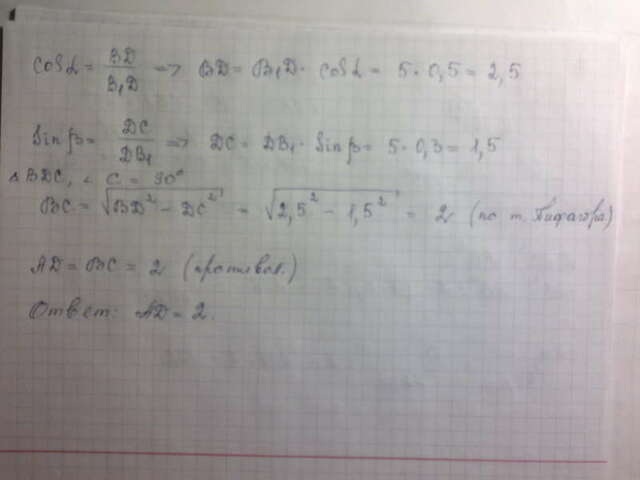 cos α = BD / B₁D => BD = B₁D · cos α = 5 · 0,5 = 2,5
sin β = DC / DB₁ => DC = DB₁ · sin β = 5 · 0,3 = 1,5
△ BDC, ∠ C = 90°
BC = √(BD² − DC²) = √(2,5² − 1,5²) = 2 (по т. Пифагора)
AD = BC = 2 (противол.)
Ответ: AD = 2.